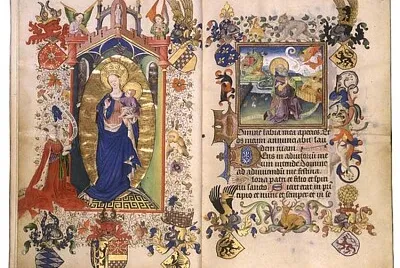 Domine labia mea aperies. Et
os meum annunciabit lau
dem tuam.
Deus in adiutorium me
um intende. Domine
ad adiuvandum me festina.
Gloria patri et filio et spiri
tui sancto. Sicut erat in pri
cipio et nunc et semper et in se